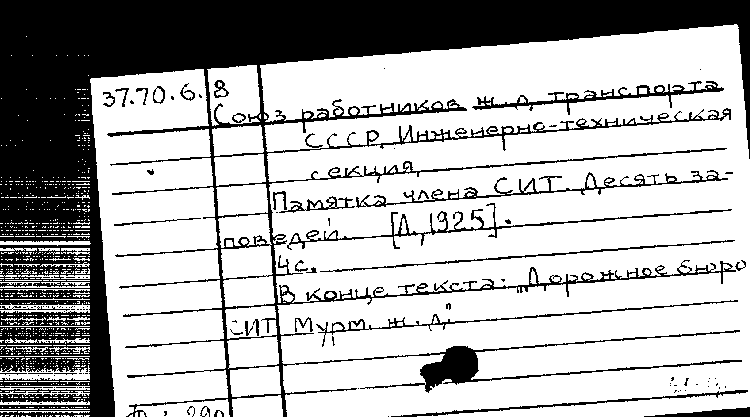 37.70.6.8
Союз работников ж.д. транспорта
СССР. Инженерно-техническая
секция.
Памятка члена СИТ. Десять за-
поведей. [Л., 1925].
4с.
В конце текста: „Дорожное бюро
СИТ Мурм. ж.д."